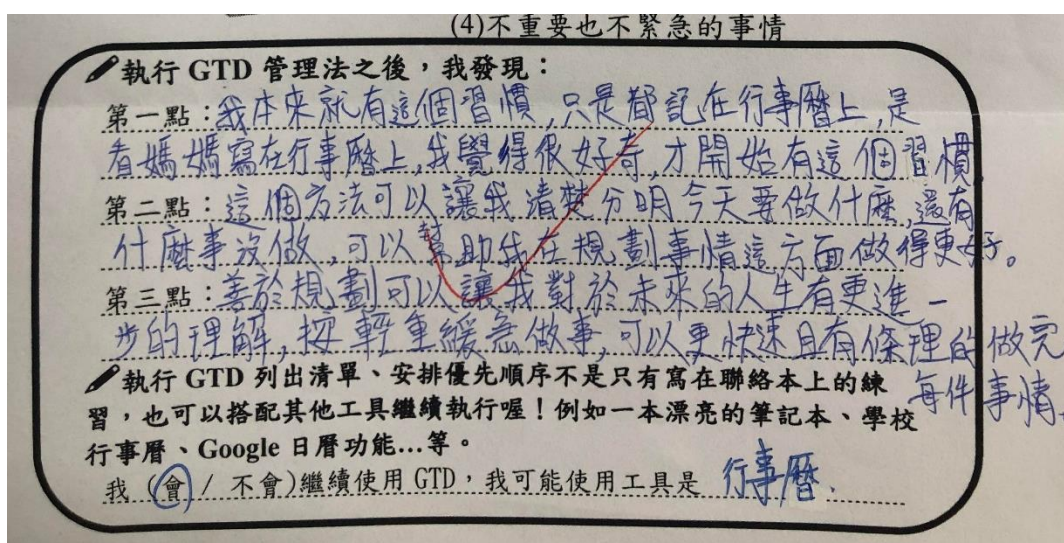 (4)不重要也不緊急的事情
執行 GTD 管理法之後，我發現：
第一點：我本來就有這個習慣,只是都記在行事曆上,是
看媽媽寫在行事曆上,我覺得很好奇,才開始有這個習慣
第二點：這個方法可以讓我清楚分明今天要做什麼,還有
什麼事沒做,可以幫助我在規劃事情這方面做得更好。
第三點：善於規劃可以讓我對於未來的人生有更進一
步的理解,按輕重緩急做事,可以更快速且有條理的做完
每件事情.
執行 GTD 列出清單、安排優先順序不是只有寫在聯絡本上的練
習，也可以搭配其他工具繼續執行喔！例如一本漂亮的筆記本、學校
行事曆、Google 日曆功能…等。
我 (會 / 不會)繼續使用 GTD，我可能使用工具是 行事曆.